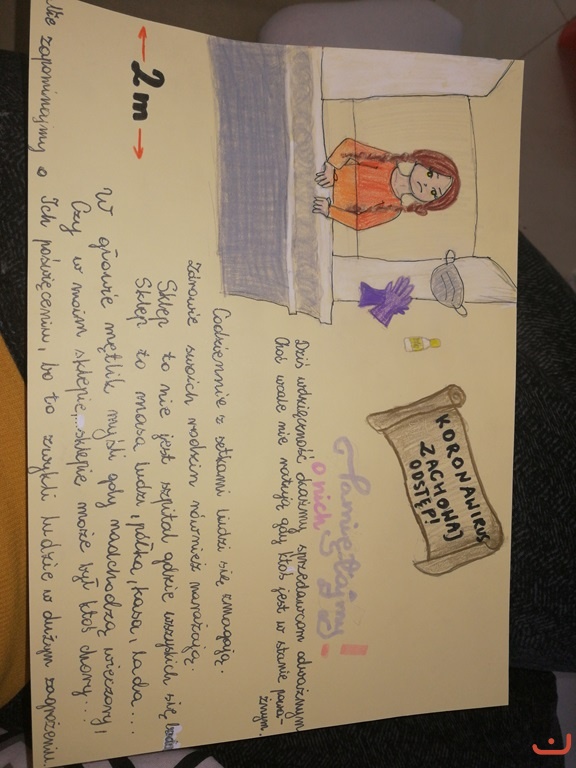 KORONAWIRUS
ZACHOWAJ
ODSTĘP!
Pamiętajmy
o nich!
Dziś wdzięczność okażmy sprzedawcom odważnym
Choć wcale nie ratują gdy ktoś jest w stanie powa-
żnym.
Codziennie z setkami ludzi się zmagają.
Zdrowie swoich rodzin również narażają.
Sklep to nie jest szpital gdzie wszystkich się bada
Sklep to masa ludzi, półka, kasa, lada...
W głowie mętlik myśli gdy nadchodzą wieczory!
Czy w moim sklepie, sklepie może był ktoś chory...
Nie zapominajmy o Ich poświęceniu, bo to zwykli ludzie w dużym zagrożeniu.
2m